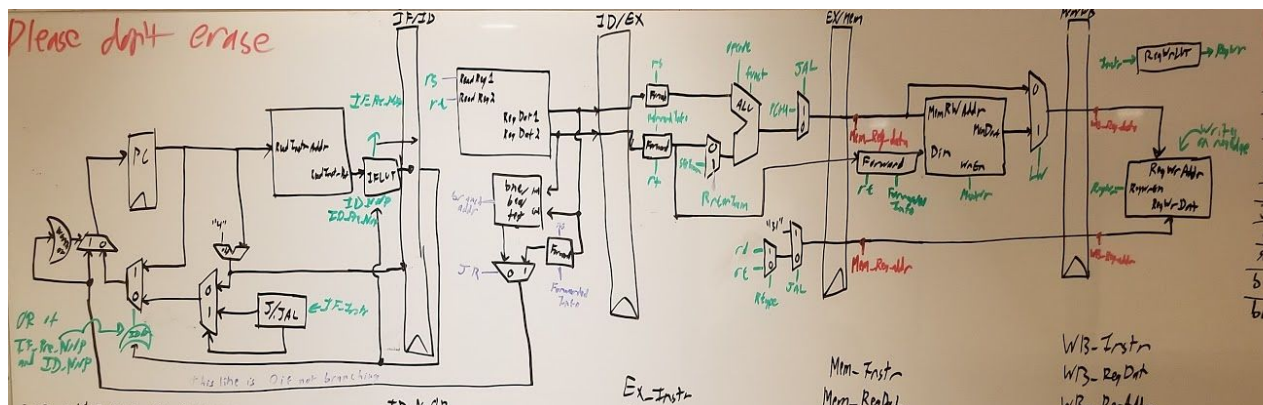 Please don't erase
IF/ID
ID/EX
EX/Mem
PC
"4"
Read Instr Addr
IFLUT
ID_NNP
1 0
1
0
0
1
J/JAL
IF_Instr
OR if
IF_Pre_NNP
and ID_NNP
This line is 0 if not branching
rs
Read Reg 1
Read Reg 2
Reg Dat 1
Reg Dat 2
bne/
beq/
JR
0 1
Forward
Forwarded
Info
rs
Forward
Forward
rt
opcode
funct
ALU
0
1
JAL
PC+4
"31"
rd
rt
Rtype
JAL
Mem_Reg-data
Mem_Reg-addr
Forward
rt
Forwarded
Info
MemRW Addr
MemDat
Din
WrEn
MemWr
0
1
LW
WB_Reg-data
WB_Reg-addr
Instr
RegWr
Write
on negEdge
RegWrAddr
RegWrEn
RegWrDat
Ex_Instr
Mem_Instr
Mem_RegDat
WB_Instr
WB_RegDat